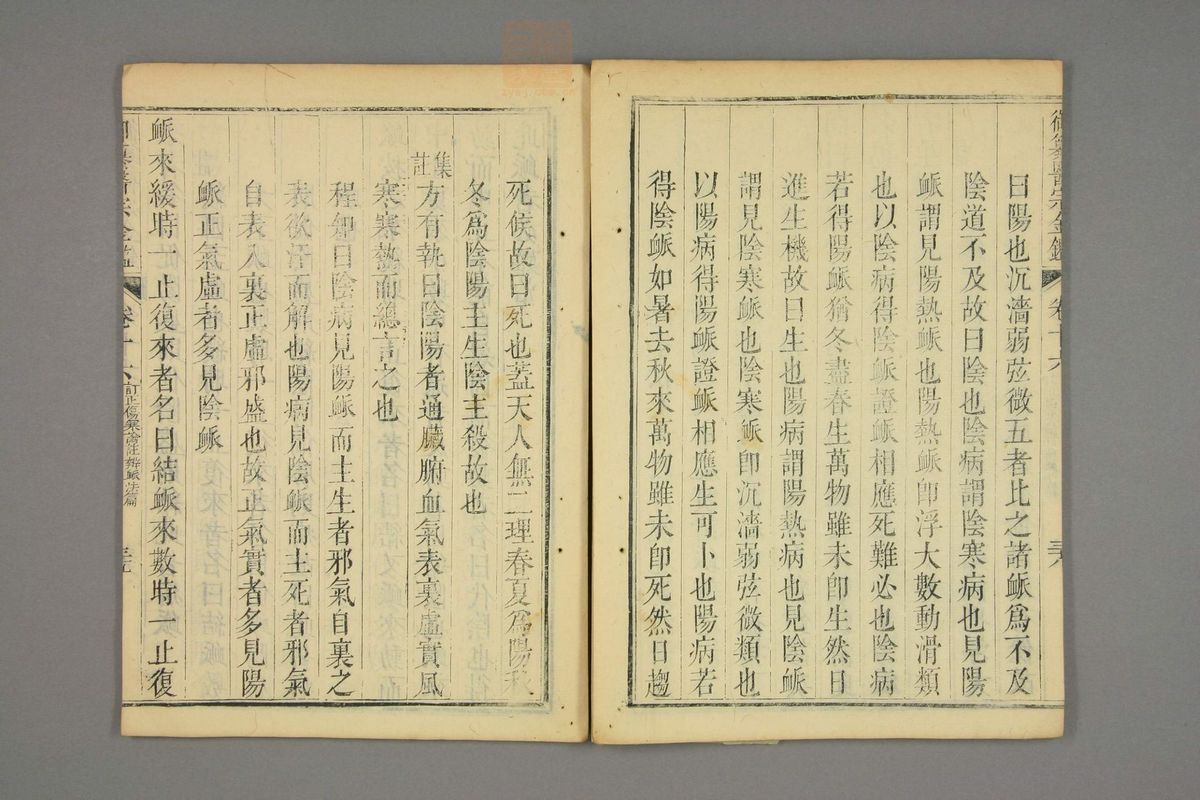 御纂醫宗金鑑 卷十六
曰陽也沉濇弱弦微五者比之諸脈爲不及
陰道不及故曰陰也陰病謂陰寒病也見陽
脈謂見陽熱脈也陽熱脈卽浮大數動滑類
也以陰病得陰脈證脈相應死難必也陰病
若得陽脈猶冬盡春生萬物雖未卽生然日
進生機故曰生也陽病謂陽熱病也見陰脈
謂見陰寒脈也陰寒脈卽沉濇弱弦微類也
以陽病得陽脈證脈相應生可卜也陽病若
得陰脈如暑去秋來萬物雖未卽死然日趨
死候故曰死也蓋天人無二理春夏爲陽秋
冬爲陰陽主生陰主殺故也
集註
方有執曰陰陽者通臟腑血氣表裏虛實風
寒寒熱而總言之也
程知曰陰病見陽脈而主生者邪氣自裏之
表欲汗而解也陽病見陰脈而主死者邪氣
自表入裏正虛邪盛也故正氣實者多見陽
脈正氣虛者多見陰脈
脈來緩時一止復來者名曰結脈來數時一止復
卷十六 訂正傷寒論註辨脈法篇